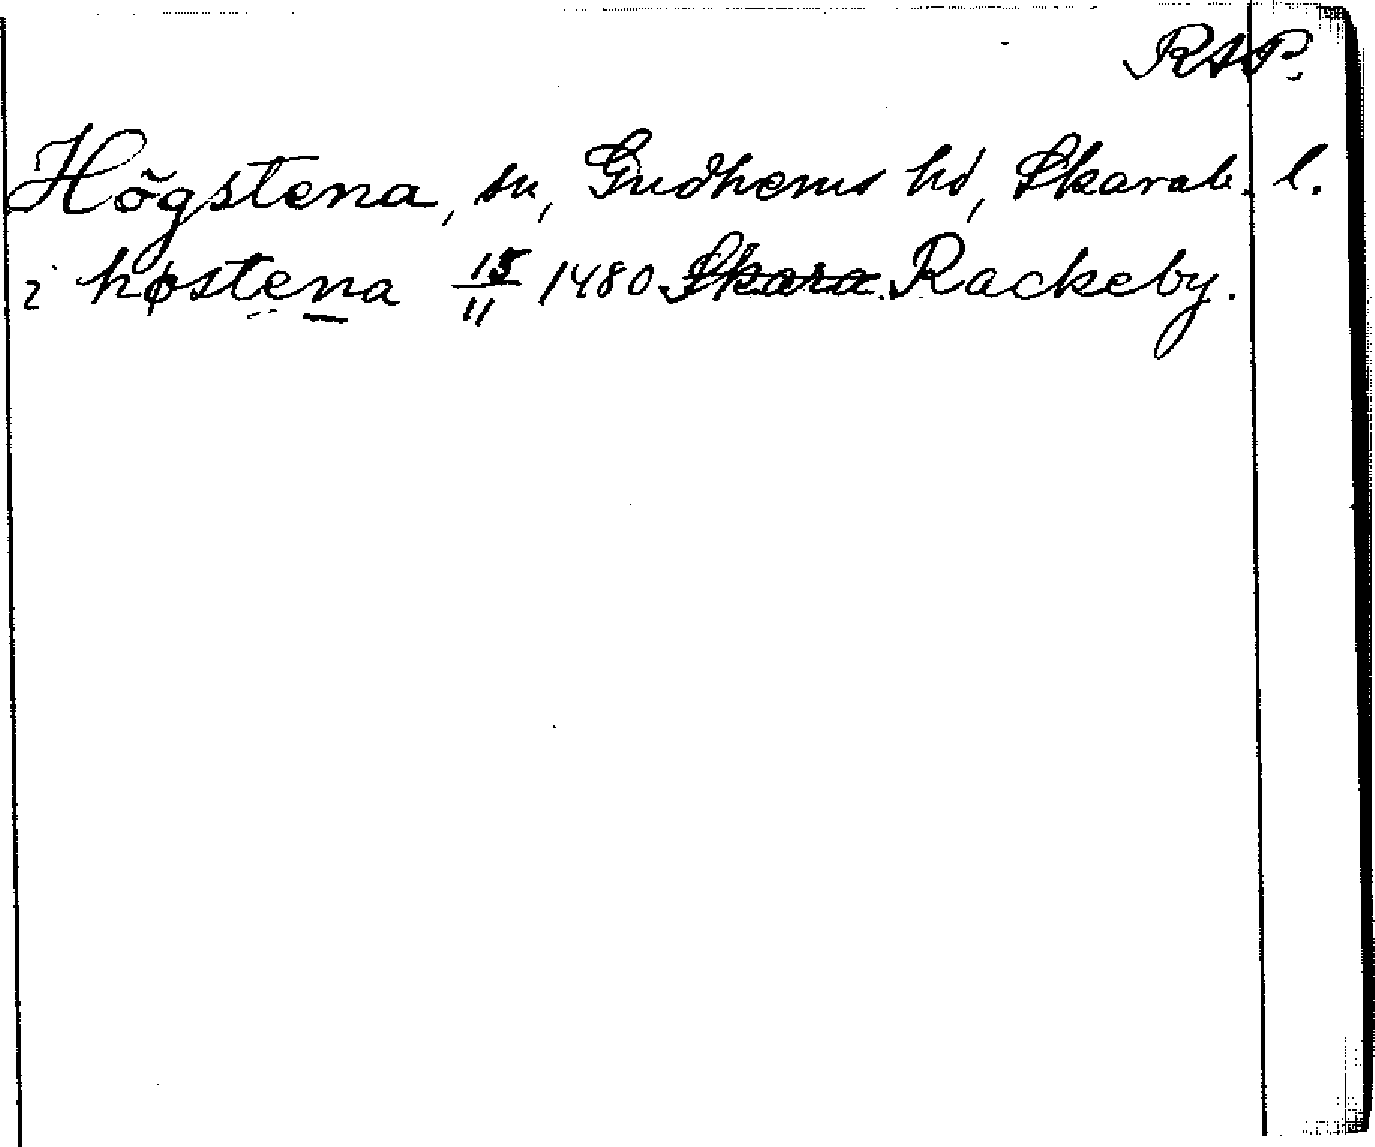 RAP.
Högstena, sn, Gudhems hd, Skarab. l.
i høstena 15/11 1480 Skara Rackeby.